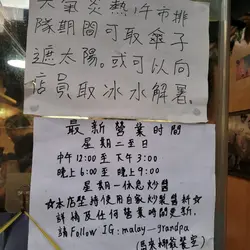 天氣炎熱,午市排
隊期間可取傘子
遮太陽。或可以向
店員取冰水解暑。
最新營業時間
星期二至日
中午12:00至下午3:00
晚上6:00至晚上9:00
星期一休息炒醬
☆本店堅持使用自家炒製醬料☆
詳情及任何營業時間更新,
請Follow IG: malay_grandpa
(馬來椰嶽棠室)